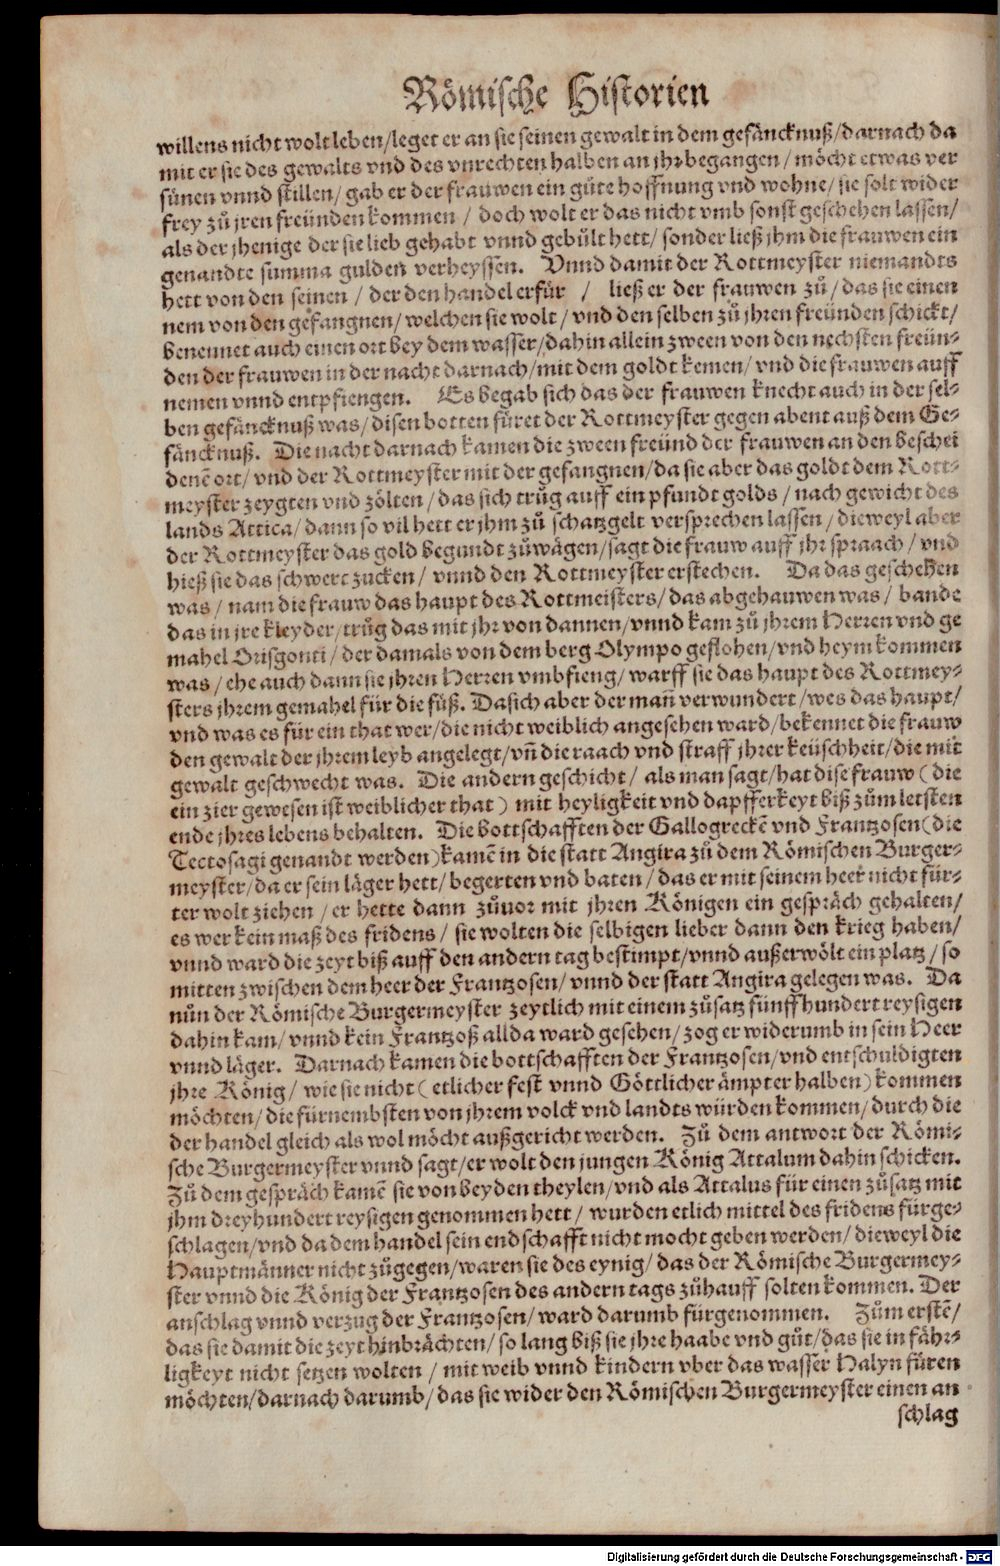 Römische Historien
willens nicht wolt leben/leget er an sie seinen gewalt in dem gefäncknuß/darnach da
mit er sie des gewalts vnd des vnrechten halben an jhr begangen/ möcht etwas ver
sünen vnnd stillen/ gab er der frauwen ein gůte hoffnung vnd wohne/ sie solt wider
frey zů jren freünden kommen / doch wolt er das nicht vmb sonst geschehen lassen/
als der jhenige der sie lieb gehabt vnnd gebůlt hett/ sonder ließ jhm die frauwen ein
genandte summa gulden verheyssen. Vnnd damit der Rottmeyster niemandts
hett von den seinen / der den handel erfür / ließ er der frauwen zů/ das sie einen
nem von den gefangnen/ welchen sie wolt / vnd den selben zů jhren freünden schickt/
benennet auch einen ort bey dem wasser/dahin allein zween von den nechsten freün-
den der frauwen in der nacht darnach/mit dem goldt kemen/ vnd die frauwen auff
nemen vnnd entpfiengen. Es begab sich das der frauwen knecht auch in der sel-
ben gefäncknuß was/ disen botten füret der Rottmeyster gegen abent auß dem Ge-
fäncknuß. Die nacht darnach kamen die zween freünd der frauwen an den beschei
denẽ ort/ vnd der Rottmeyster mit der gefangnen/da sie aber das goldt dem Rott-
meyster zeygten vnd zölten / das sich trůg auff ein pfundt golds / nach gewicht des
lands Attica/ dann so vil hett er jhm zů schatzgelt versprechen lassen / dieweyl aber
der Rottmeyster das gold begundt zůwägen/sagt die frauw auff jhr spraach / vnd
hieß sie das schwert zucken/ vnnd den Rottmeyster erstechen. Da das geschehen
was / nam die frauw das haupt des Rottmeisters/ das abgehauwen was/ bande
das in jre kleyder/trůg das mit jhr von dannen/vnnd kam zů jhrem Herren vnd ge
mahel Orisgonti / der damals von dem berg Olympo geflohen/vnd heym kommen
was / ehe auch dann sie jhren Herren vmbfieng/ warff sie das haupt des Rottmey-
sters jhrem gemahel für die füß. Da sich aber der mañ verwundert/ wes das haupt/
vnd was es für ein that wer/die nicht weiblich angesehen ward/bekennet die frauw
den gewalt der jhrem leyb angelegt/vñ die raach vnd straff jhrer keüschheit/die mit
gewalt geschwecht was. Die andern geschicht/ als man sagt/hat dise frauw (die
ein zier gewesen ist weiblicher that) mit heyligkeit vnd dapfferkeyt biß zům letsten
ende jhres lebens behalten. Die bottschafften der Gallogreckẽ vnd Frantzosen(die
Tectosagi genandt werden)kamẽ in die statt Angira zů dem Römischen Burger-
meyster/da er sein läger hett/ begerten vnd baten / das er mit seinem heer nicht für-
ter wolt ziehen / er hette dann zůuor mit jhren Königen ein gespräch gehalten/
es wer kein maß des fridens / sie wolten die selbigen lieber dann den krieg haben/
vnnd ward die zeyt biß auff den andern tag bestimpt/vnnd außerwölt ein platz / so
mitten zwischen dem heer der Frantzosen/ vnnd der statt Angira gelegen was. Da
nůn der Römische Burgermeyster zeytlich mit einem zůsatz fünffhundert reysigen
dahin kam/ vnnd kein Frantzoß allda ward gesehen/ zog er widerumb in sein Heer
vnnd läger. Darnach kamen die bottschafften der Frantzosen/vnd entschuldigten
jhre König/ wie sie nicht (etlicher fest vnnd Göttlicher ämpter halben) kommen
möchten/ die fürnembsten von jhrem volck vnd landts würden kommen/ durch die
der handel gleich als wol möcht außgericht werden. Zů dem antwort der Römi-
sche Burgermeyster vnnd sagt/er wolt den jungen König Attalum dahin schicken.
Zů dem gespräch kamẽ sie von beyden theylen/vnd als Attalus für einen zůsatz mit
jhm dreyhundert reysigen genommen hett / wurden etlich mittel des fridens fürge-
schlagen/vnd da dem handel sein endschafft nicht mocht geben werden/ dieweyl die
Hauptmänner nicht zůgegen/waren sie des eynig/ das der Römische Burgermey-
ster vnnd die König der Frantzosen des andern tags zůhauff solten kommen. Der
anschlag vnnd verzug der Frantzosen/ ward darumb fürgenommen. Zům erstẽ/
das sie damit die zeyt hinbrächten/ so lang biß sie jhre haabe vnd gůt/das sie in fähr-
ligkeyt nicht setzen wolten / mit weib vnnd kindern vber das wasser Halyn füren
möchten/darnach darumb/ das sie wider den Römischen Burgermeyster einen an
schlag
Digitalisierung gefördert durch die Deutsche Forschungsgemeinschaft - DFG